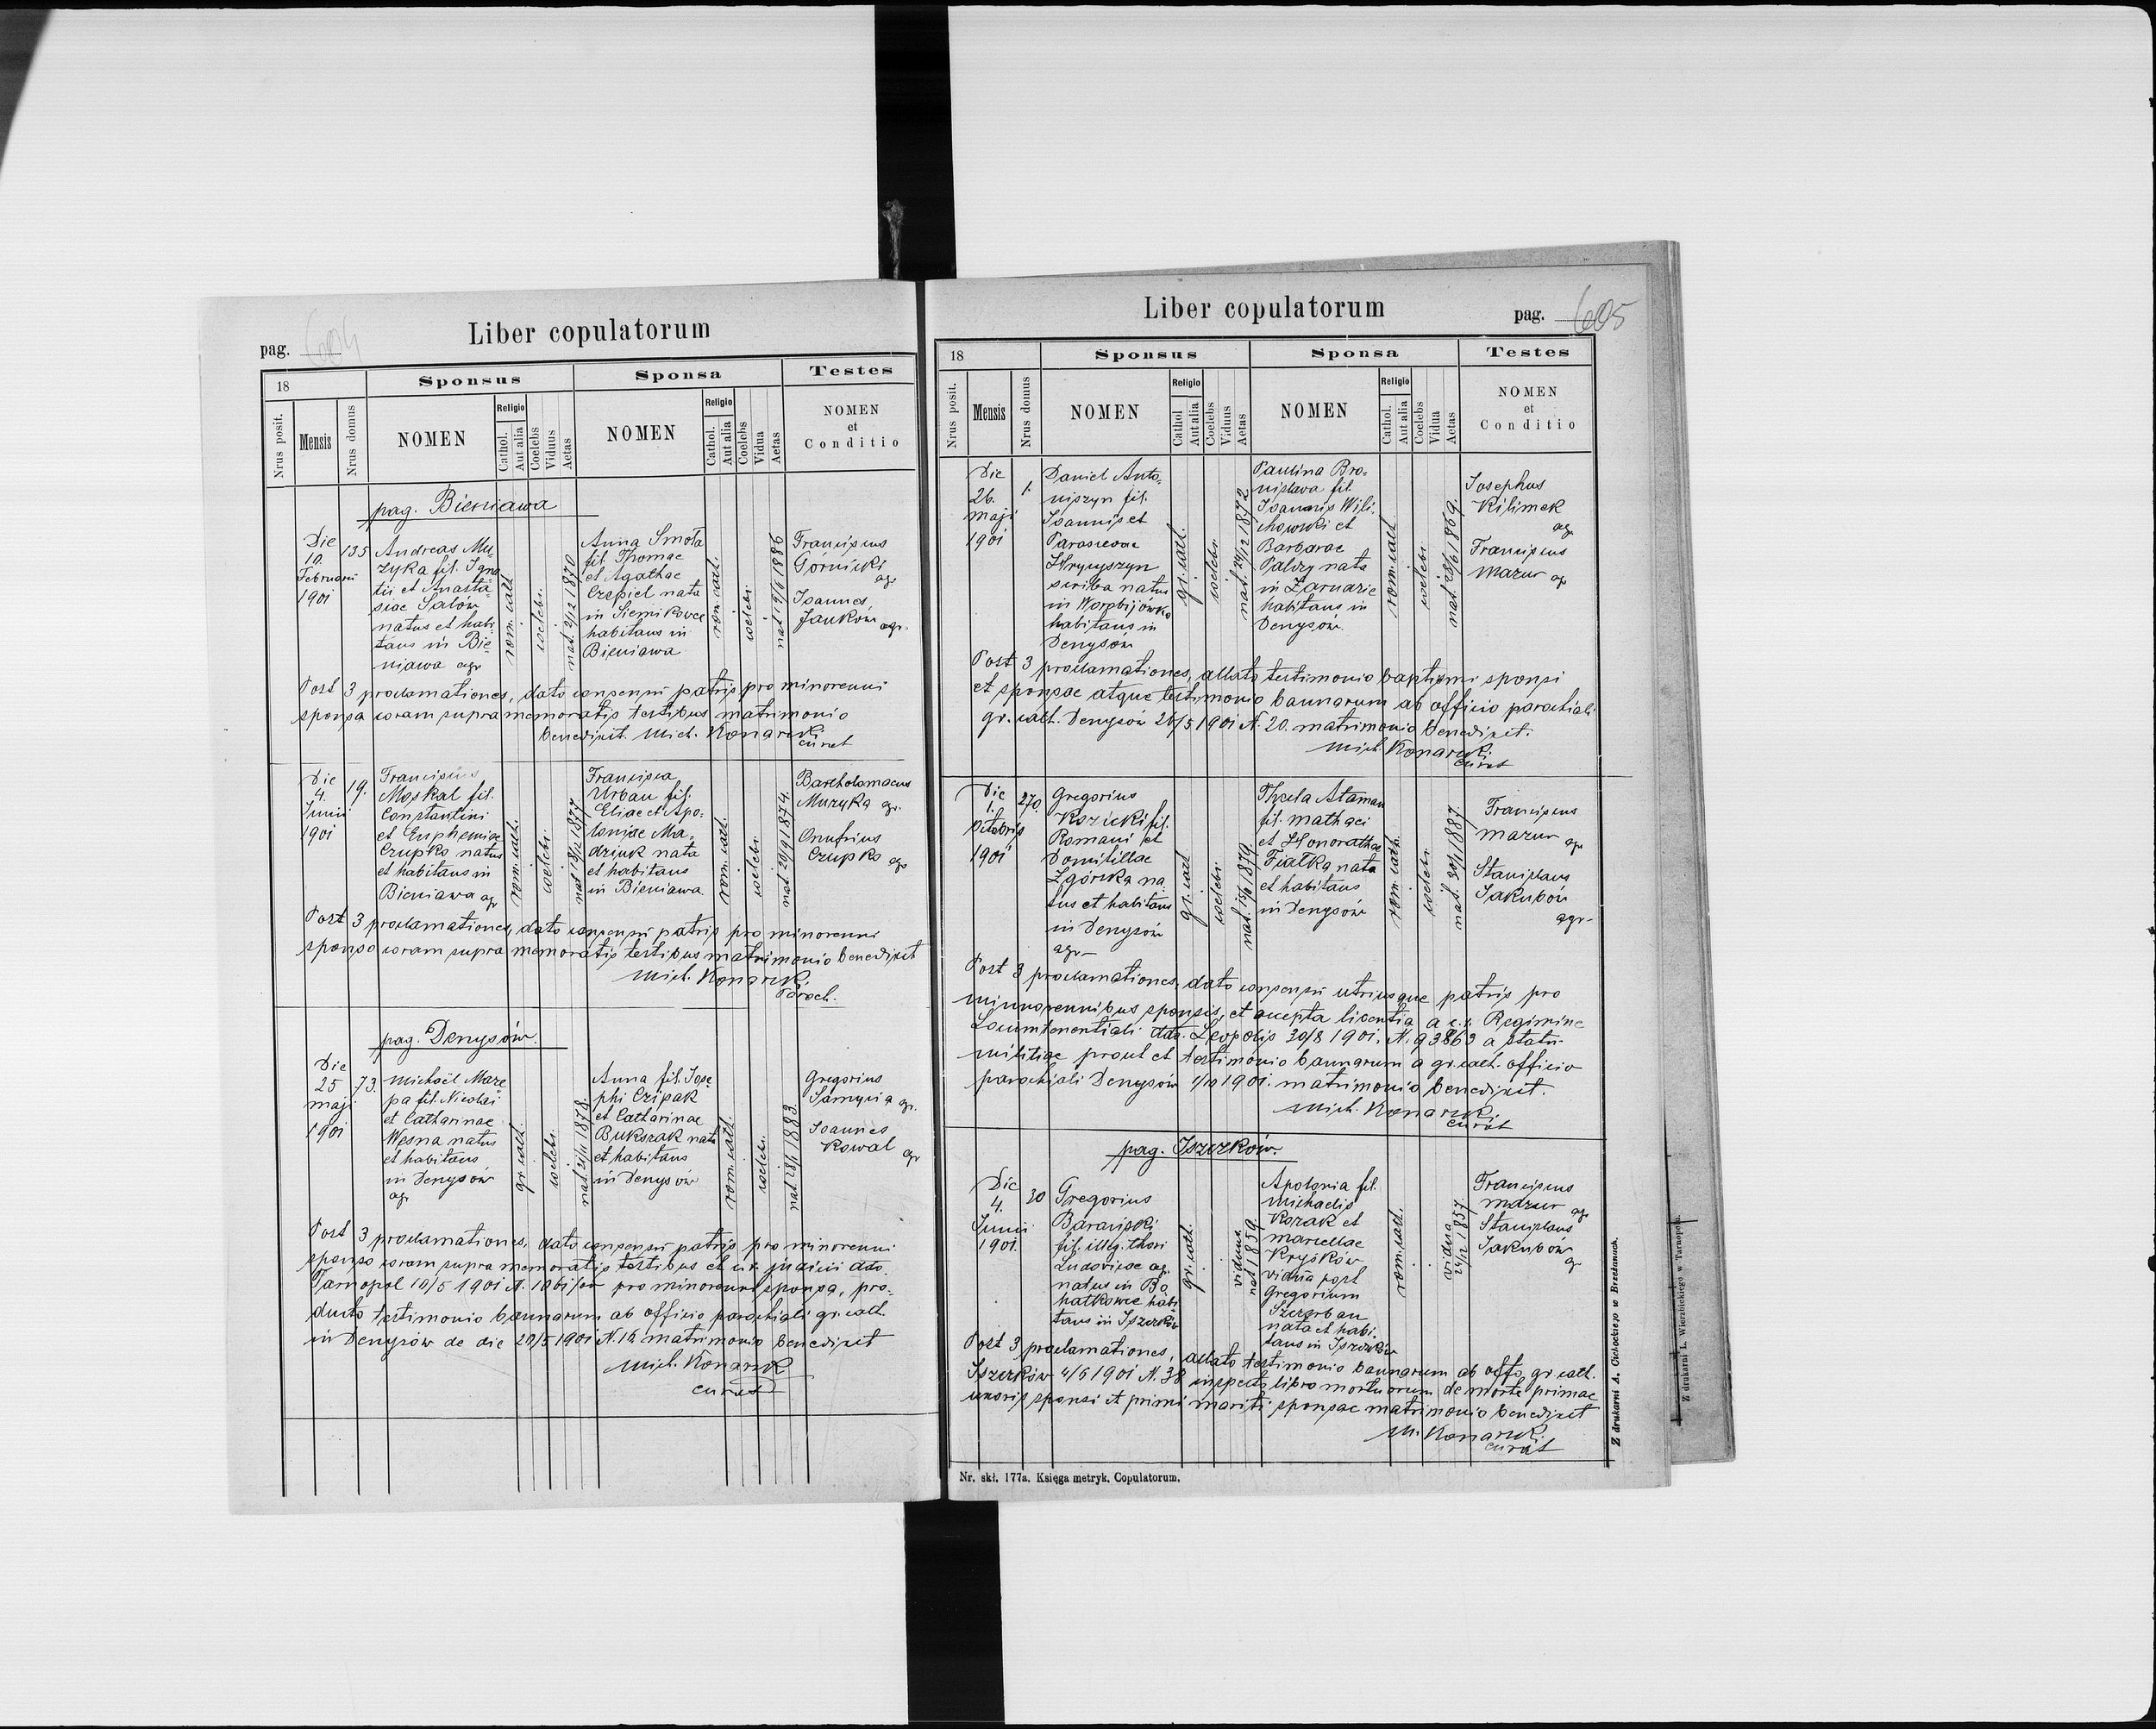 Liber copulatorum
pag. 604
18
Sponsus
Sponsa
Testes
Nrus posit.
Mensis
Nrus domus
NOMEN
Religio
Cathol.
Aut alia
Coelebs
Viduus
Aetas
NOMEN
Religio
Cathol.
Aut alia
Coelebs
Vidua
Aetas
NOMEN
et
Conditio
pag. Bieniawa
Die
10.
Februarii
1901
135
Andreas Mu-
zyka fil. Igna
tii et Anasta-
siae Salów
natus et habi-
tans in Bie-
niawa agr
rom. cath.
coelebs.
nat. 2/12 1870
Anna Smoła
fil. Thomae
et Agathae
Czepiel nata
in Siemikowce
habitans in
Bieniawa
rom. cath.
coelebs.
1886
Franciscus
Górnicki
agr
Ioannes
Janków agr.
Post 3 proclamationes, dato consensu patris pro minorenni
sponsa coram supra memoratis testibus matrimonio
benedixit Mich. Konarski
curat
Die
4.
Junii
1901
19.
Franciscus
Moskal fil.
Constantini
et Euphemiae
Czupko natus
et habitans in
Bieniawa agr
rom. cath.
coelebs.
1877
Francisca
Urban fil.
Eliae et Apo-
loniae Ma-
dziuk nata
et habitans
in Bieniawa
rom. cath.
coelebs.
nat. 20/9 1874.
Bartholomaeus
Muzyka agr.
Onufrius
Czupko agr
Post 3 proclamationes, dato consensu patris pro minorenni
sponso coram supra memoratis testibus matrimonio benedixit
Mich. Konarski
Paroch.
pag. Denysów.
Die
25
Maji
1901
73.
Michaël Maze
pa fil. Nicolai
et Catharinae
Wesna natus
et habitans
in Denysów
agr
gr. cath.
coelebs.
nat. 21/11 1878.
Anna fil. Jose
phi Czipak
et Catharinae
Bukszak nata
et habitans
in Denysów
rom. cath.
coelebs.
nat. 28/1 1883.
Gregorius
Samycia agr.
Ioannes
Kowal agr
Post 3 proclamationes, dato consensu patris pro minorenni
sponso coram supra memoratis testibus et judicii ddo.
Tarnopol 10/5 1901 N. pro minorenni sponsa, pro-
ducto testimonio bannorum ab officio parochiali gr. cath.
in Denysów de die 20/5 1901 N. matrimonio benedixit
Mich. Konarski
curat
Liber copulatorum
pag. 605
18
Sponsus
Sponsa
Testes
Nrus posit.
Mensis
Nrus domus
NOMEN
Religio
Cathol
Aut alia
Coelebs
Viduus
Aetas
NOMEN
Religio
Cathol.
Aut alia
Coelebs
Vidua
Aetas
NOMEN
et
Conditio
Die
26.
Maji
1901
1.
Daniel Anto-
niszyn fil.
Ioannis et
Parascevae
Hrycyszyn
scriba natus
in Worobijówka
habitans in
Denysów
gr. cath.
coelebs.
nat. 24/12 1872
Paulina Bro-
nislava fil.
Ioannis Wili-
chowski et
Barbarae
Palzy nata
in Zarnarie
habitans in
Denysów.
rom. cath.
coelebs
nat. 28/6 1869.
Josephus
Kilimek
agr
Franciscus
Mazur agr
Post 3 proclamationes, allato testimonio baptismi sponsi
et sponsae atque testimonio bannorum ab officio parochiali
gr. cath. Denysów 26/5 1901 N. 20. matrimonio benedixit.
Mich. Konarski
curat
Die
1.
Octobris
1901
270.
Gregorius
Kozicki fil.
Romani et
Domitillae
Zgórska na
tus et habitans
in Denysów
agr-
gr. cath
coelebs.
1879
Thecla Ataman
fil. Mathaei
et Honorathae
Fiałka nata
et habitans
in Denysów
rom. cath.
coelebs.
1887.
Franciscus
Mazur agr
Stanislaus
Jakubów
agr-
Post 3 proclamationes, dato consensu utriusque patris pro
minorennibus sponsis, et accepta licentia a c. r. Regimine
Locumtenentiali ddo. Leopolis 30/8 1901. N. 93863 a statu
militiae prout et testimonio bannorum a gr. cath. officio
parochiali Denysów 1/10 1901. matrimonio benedixit.
Mich. Konarski
curat
pag. Iszczków.
Die
4.
Junii
1901.
30
Gregorius
Baraniecki
fil. illeg. thori
Ludovicae agr.
natus in Bo
hatkowce habi
tans in Iszczków
gr. cath.
viduus
nat 1859
Apolonia fil.
Michaelis
Kozak et
Marcellae
Krysków
vidua post
Gregorium
Szczerban
nata et habi-
tans in Iszczków
rom. cath.
vidua
24/12 1857
Franciscus
Mazur agr
Stanislaus
Jakubów
agr
Post 3 proclamationes, allato testimonio bannorum ab offo. gr. cath.
Iszczków 4/6 1901 N. 38 inspecto libro mortuorum de morte primae
uxoris sponsi et primi mariti sponsae matrimonio benedixit
M. Konarski
curat
Nr. skł. 177a. Księga metryk, Copulatorum.
Z drukarni A. Cichockiego w Brzeżanach.
Z drukarni L. Wierzbickiego w Tarnopolu.